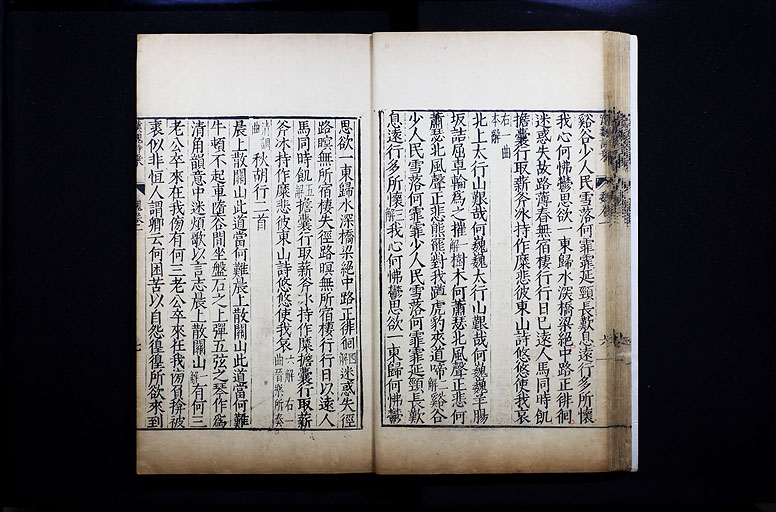 谿谷少人民雪落何霏霏延頸長歎息遠行多所懷
我心何怫鬱思欲一東歸水深橋梁絕中路正徘徊
迷惑失故路薄暮無宿棲行行日已遠人馬同時飢
擔囊行取薪斧冰持作糜悲彼東山詩悠悠使我哀
右一曲
本辭
北上太行山艱哉何巍巍太行山艱哉何巍巍羊腸
坂詰屈車輪為之摧一解樹木何蕭瑟北風聲正悲何
蕭瑟北風聲正悲熊羆對我蹲虎豹夾道啼二解谿谷
少人民雪落何霏霏少人民雪落何霏霏延頸長歎
息遠行多所懷三解我心何怫鬱思欲一東歸何怫鬱
思欲一東歸水深橋梁絕中路正徘徊四解迷惑失徑
路暝無所宿棲失徑路暝無所宿棲行行日以遠人
馬同時飢五解擔囊行取薪斧冰持作糜擔囊行取薪
斧冰持作糜悲彼東山詩悠悠使我哀六解右一曲晉樂所奏
清調曲
秋胡行二首
晨上散關山此道當何難晨上散關山此道當何難
牛頓不起車墮谷間坐盤石之上彈五弦之琴作為
清角韻意中迷煩歌以言志晨上散關山一解有何三
老公卒來在我傍有何三老公卒來在我傍負揜被
裘似非恒人謂卿云何困苦以自怨徨徨所欲來到